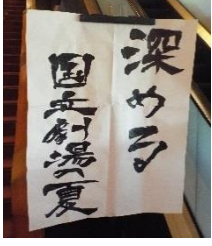 深める
国立劇場の夏